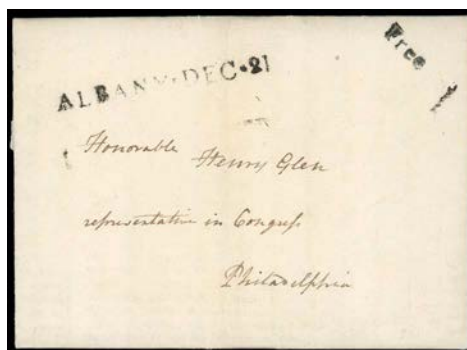 Free
ALBANY·DEC·21
Honorable
Henry Glen
representative in Congress
Philadelphia